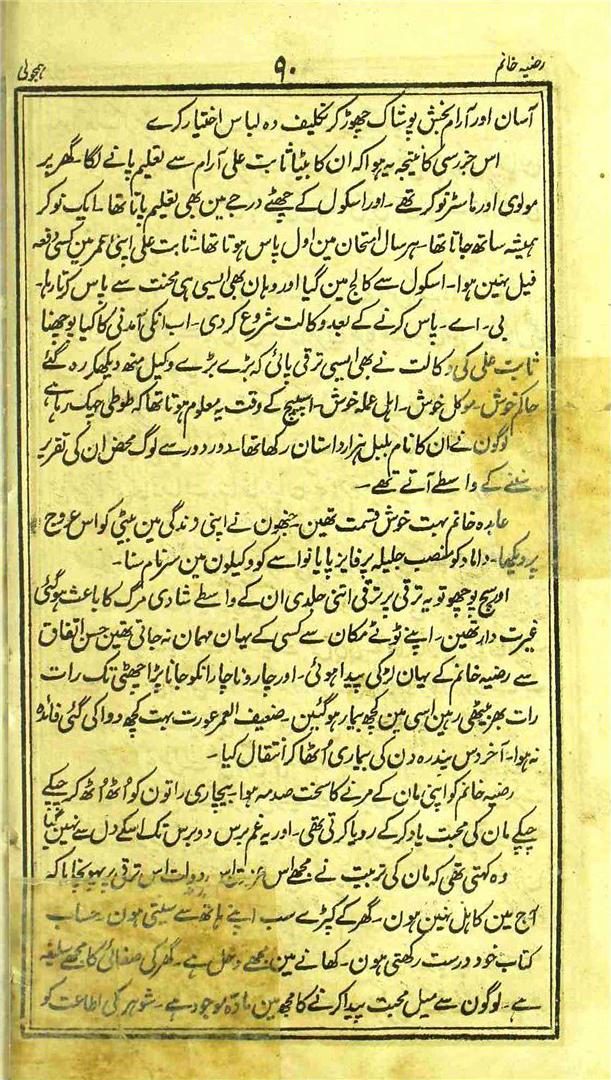 رضیہ خانم ۹۰ ہمجولی
آسان اور آرام بخش پوشاک چھوڑ کر تکلیف دہ لباس اختیار کرے
اس جزرسی کا نتیجہ یہ ہوا کہ ان کا بیٹا ثابت علی آرام سے تعلیم پانے لگا۔ گھر پر
مولوی اور ماسٹر نوکر تھے۔ اور اسکول کے چھٹے درجے مین بھی تعلیم پاتا تھا۔ ایک نوکر
ہمیشہ ساتھ جاتا تھا۔ ہر سال امتحان مین اول پاس ہوتا تھا۔ ثابت علی اپنی عمر مین کسی دفعہ
فیل نہین ہوا۔ اسکول سے کالج مین گیا اور وہان بھی ایسی ہی محنت سے پاس کرتا رہا۔
بی۔ اے۔ پاس کرنے کے بعد وکالت شروع کر دی۔ اب انکی آمدنی کا کیا پوچھنا
ثابت علی کی وکالت نے بھی ایسی ترقی پائی کہ بڑے بڑے وکیل منھ دیکھکر رہ گئے
حاکم خوش۔ موکل خوش۔ اہل عملہ خوش۔ اسپیچ کے وقت یہ معلوم ہوتا تھا کہ طوطی چہک رہا ہے
لوگون نے ان کا نام بلبل ہزار داستان رکھا تھا۔ دور دور سے لوگ محض ان کی تقریر
سننے کے واسطے آتے تھے۔
عابدہ خانم بہت خوش قسمت تھین۔ جنھون نے اپنی زندگی مین بیٹی کو اس عروج
پر دیکھا۔ داماد کو منصب جلیلہ پر فایز پایا نواسے کو وکیلون مین سرنام سنا۔
اور سچ پوچھو تو یہ ترقی پر ترقی اتنی جلدی ان کے واسطے شادی مرگ کا باعث ہوگئی
غیرت دار تھین۔ اپنے ٹوٹے مکان سے کسی کے یہان مہمان نہ جاتی تھین حسن اتفاق
سے رضیہ خانم کے یہان لڑکی پیدا ہوئی۔ اور چار و ناچار انکو جانا پڑا چھٹی تک رات
رات بھر بیٹھی رہین اسی مین کچھ بیمار ہوگئین۔ ضعیف العمر عورت بہت کچھ دوا کی گئی فائدہ
نہ ہوا۔ آخر دس پندرہ دن کی بیماری اُٹھا کر انتقال کیا۔
رضیہ خانم کو اپنی مان کے مرنے کا سخت صدمہ ہوا۔ بیچاری راتون کو اُٹھ اُٹھ کر چپکے
چپکے مان کی محبت یاد کر کے رویا کرتی تھی۔ اور یہ غم برس دو برس تک اسکے دل سے نہین گیا
وہ کہتی تھی کہ مان کی تربیت نے مجھے اس دولت اس ترقی پر پہونچایا کہ
آج مین کاہل نہین ہون۔ گھر کے کپڑے سب اپنے ہاتھ سے سیتی ہون۔ حساب
کتاب خود درست رکھتی ہون۔ کھانے مین مجھے دخل ہے۔ گھر کی صفائی کا مجھے سلیقہ
ہے۔ لوگون سے میل محبت پیدا کرنے کا مجھ مین مادہ موجود ہے۔ شوہر کی اطاعت کو